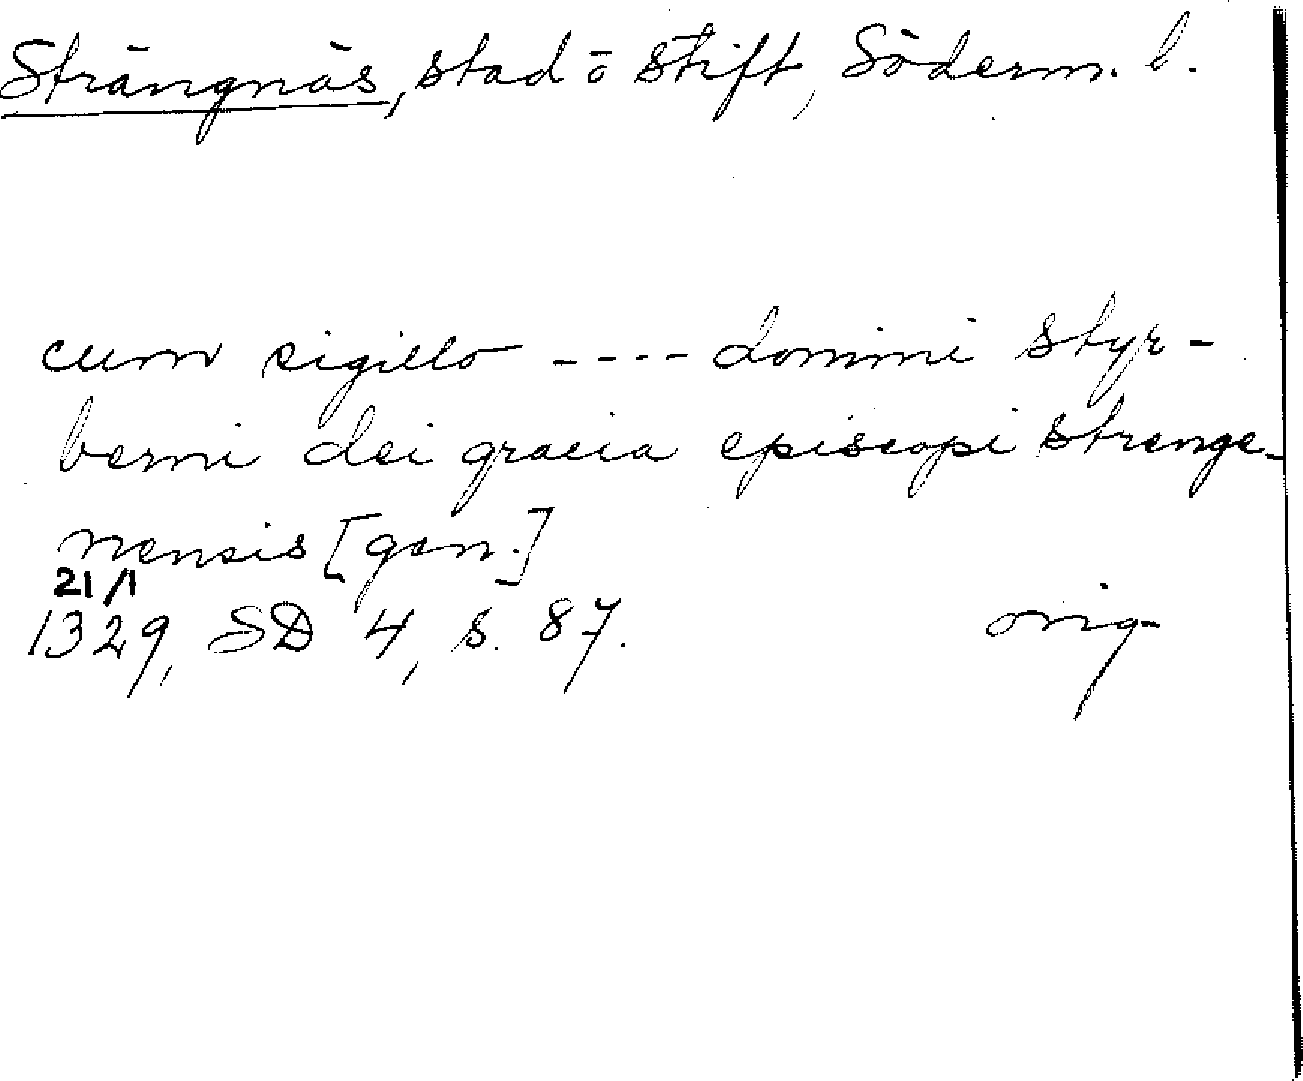 Strängnäs, stad o stift, Söderm. l.
cum sigillo ---- domini styr-
berni dei gracia episcopi strenge-
nensis [gen.]
21/1
1329, SD 4, s. 87. orig